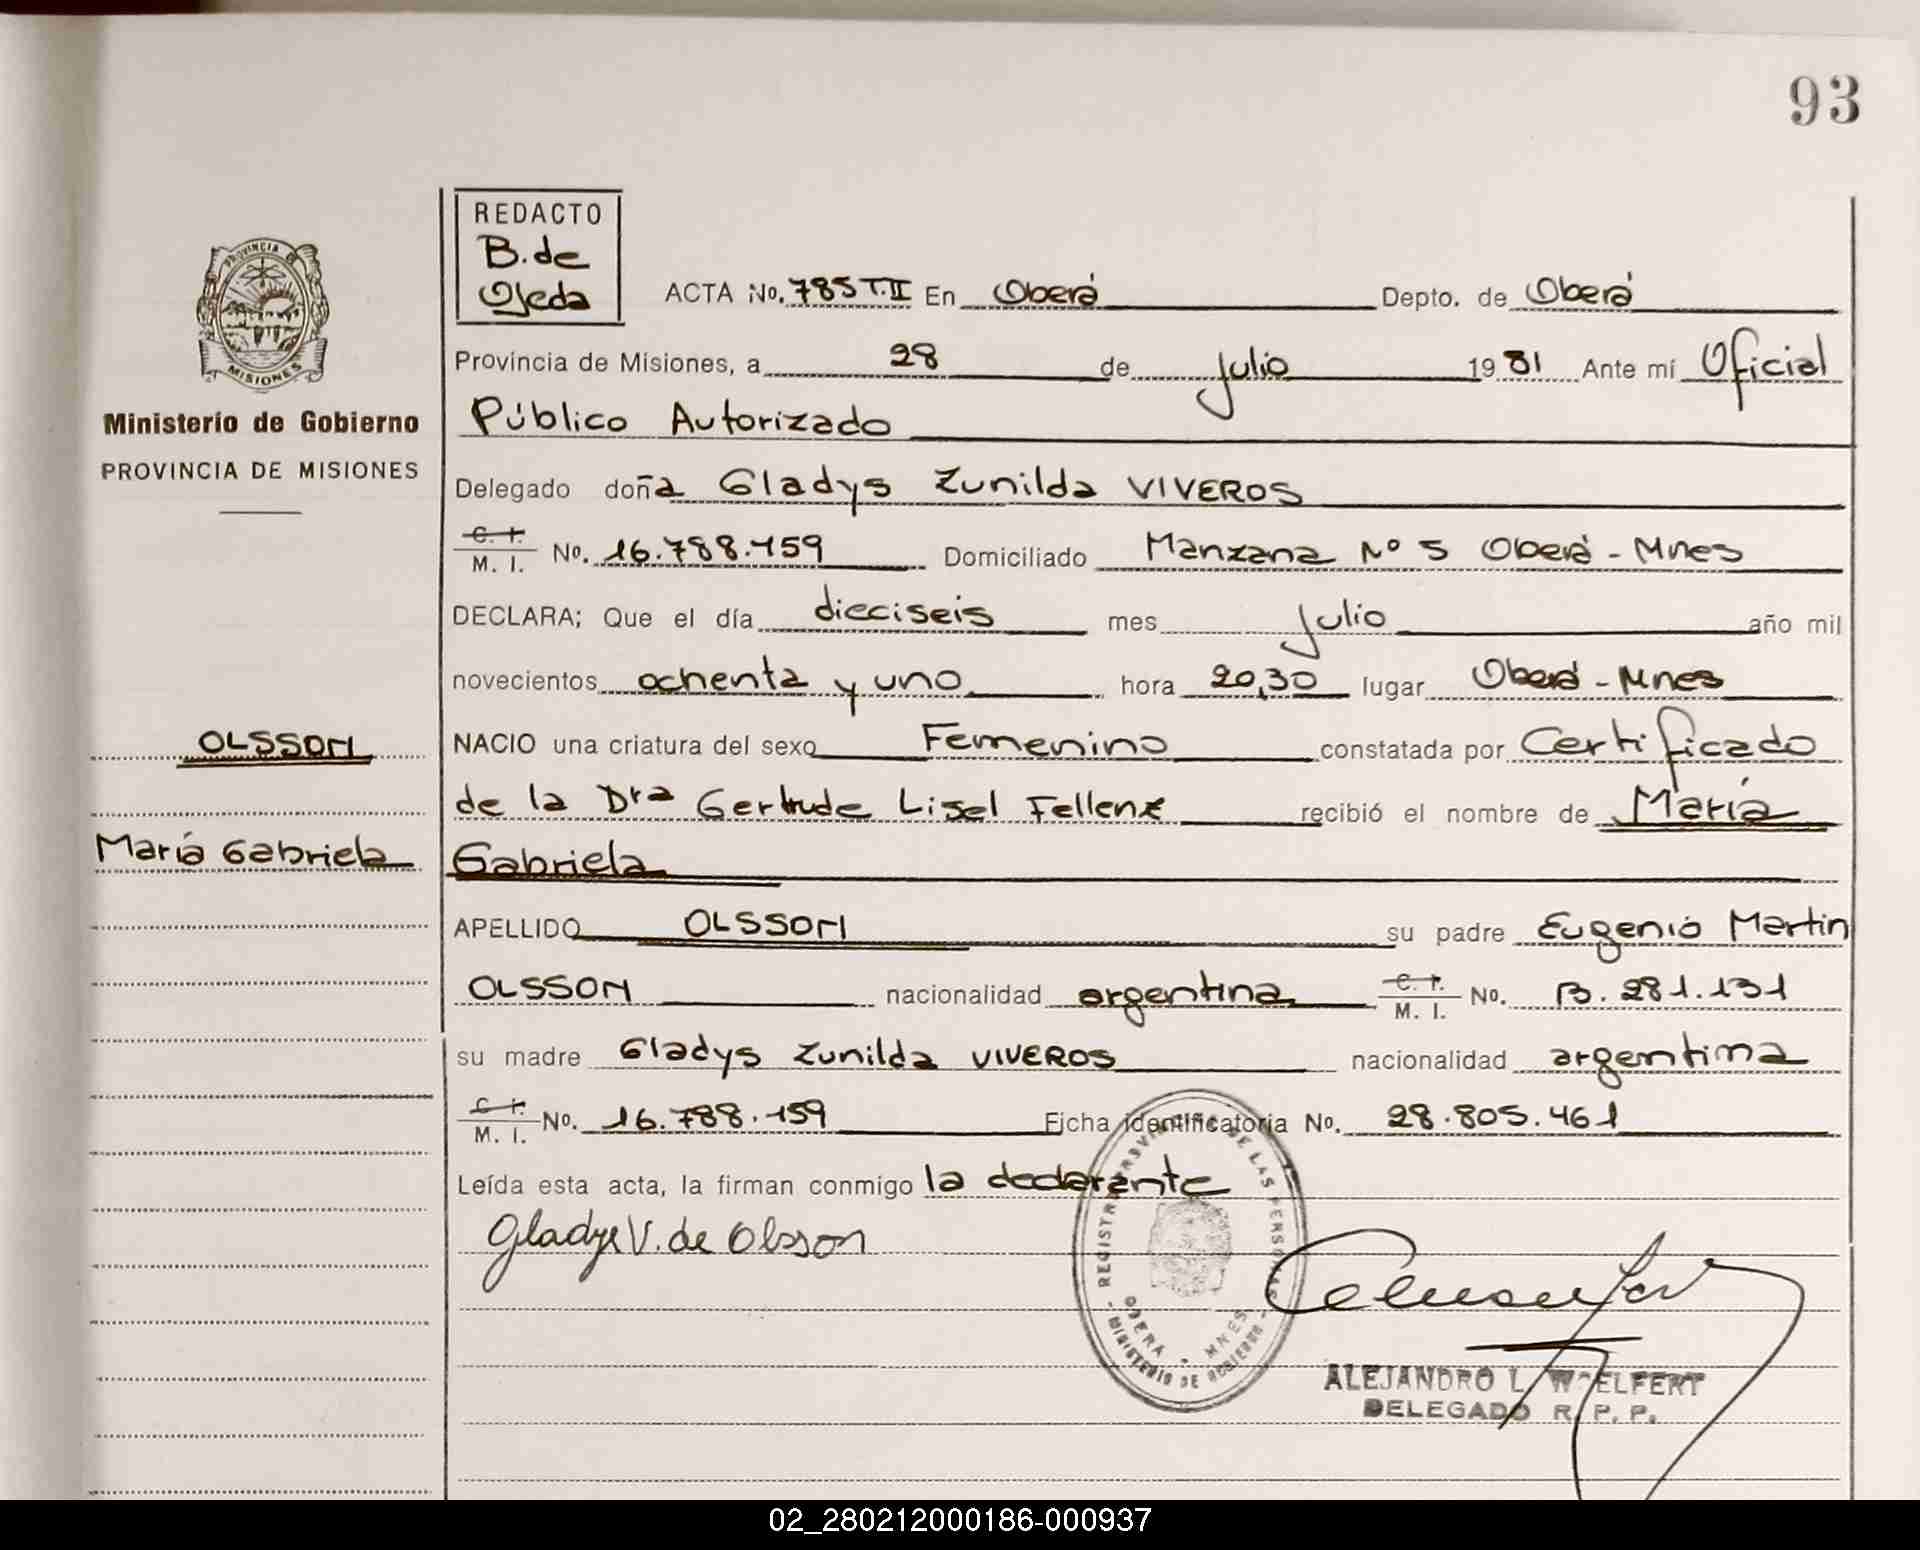 93
REDACTO
B. de
Ojeda
PROVINCIA DE
MISIONES
ACTA No. 785 T.II En Oberá Depto. de Oberá
Provincia de Misiones, a 28 de julio 1981 Ante mí Oficial
Ministerio de Gobierno
Público Autorizado
PROVINCIA DE MISIONES
Delegado doña Gladys Zunilda VIVEROS
C. I.
M. I. No. 16.788.159 Domiciliado Manzana Nº 5 Oberá - Mnes
DECLARA; Que el día dieciseis mes julio año mil
novecientos ochenta y uno hora 20,30 lugar Oberá - Mnes
OLSSON
NACIO una criatura del sexo Femenino constatada por Certificado
de la Dra Gertrude Lisel Fellenz recibió el nombre de María
María Gabriela
Gabriela
APELLIDO OLSSON su padre Eugenio Martin
OLSSON nacionalidad argentina C. I. M. I. No. 8.281.131
su madre Gladys Zunilda VIVEROS nacionalidad argentina
C. I. M. I. No. 16.788.159 Ficha identificatoria No. 28.805.461
Leída esta acta, la firman conmigo la declarante
Gladys V. de Olsson
REGISTRO PROVINCIAL DE LAS PERSONAS
OBERA - MNES
MINISTERIO DE GOBIERNO
ALEJANDRO L. WOELFERT
DELEGADO R. P. P.
02_280212000186-000937